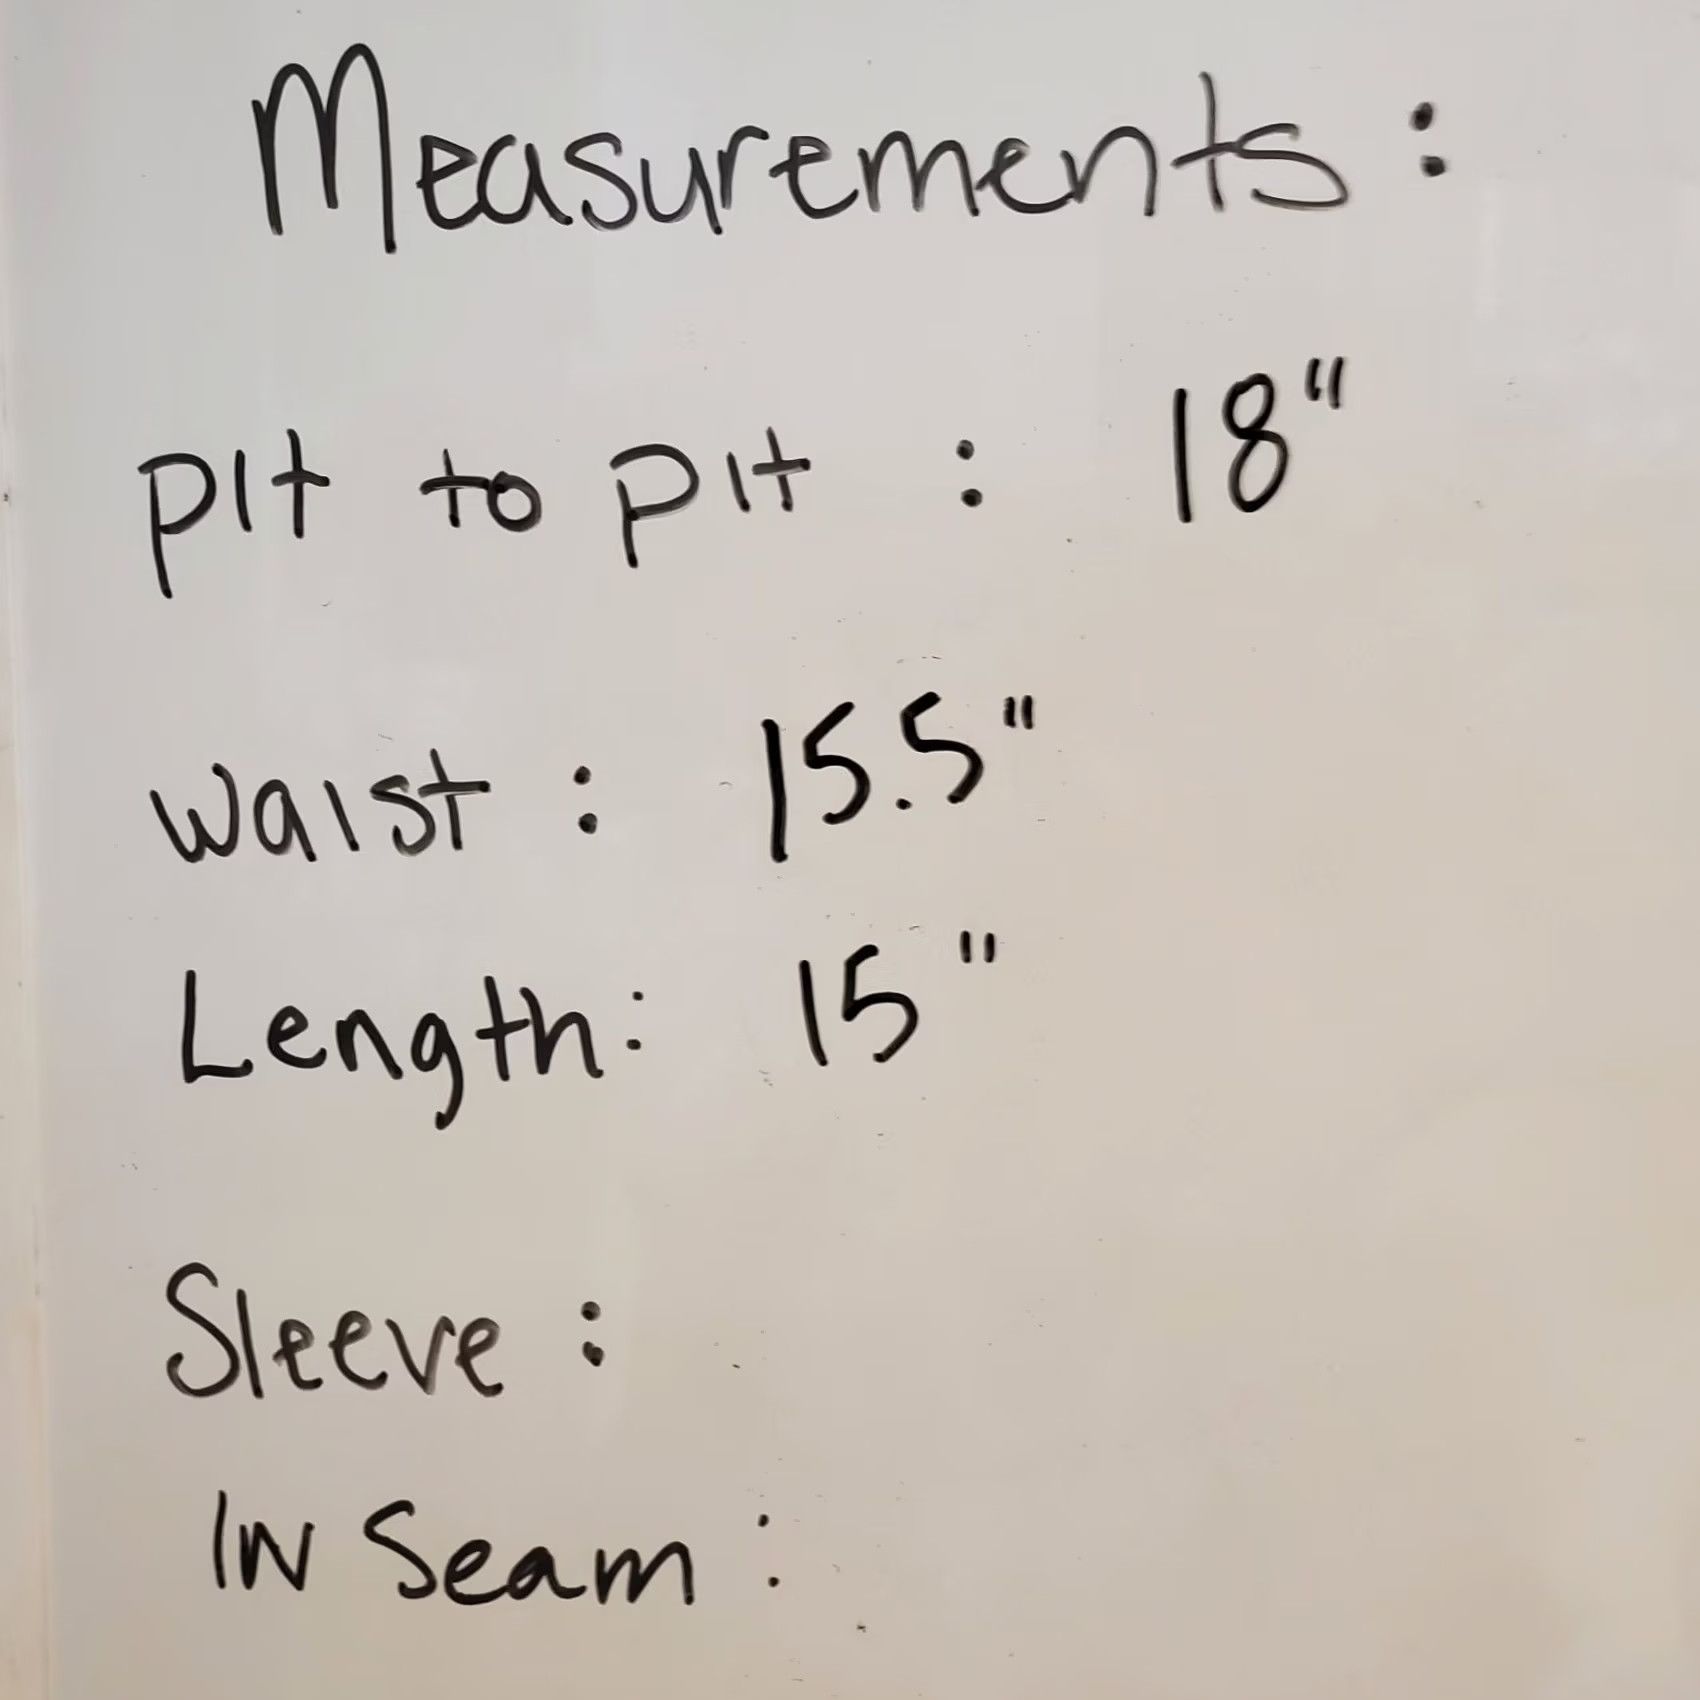 Measurements:
Pit to Pit : 18"
Waist : 15.5"
Length: 15"
Sleeve :
IN Seam :